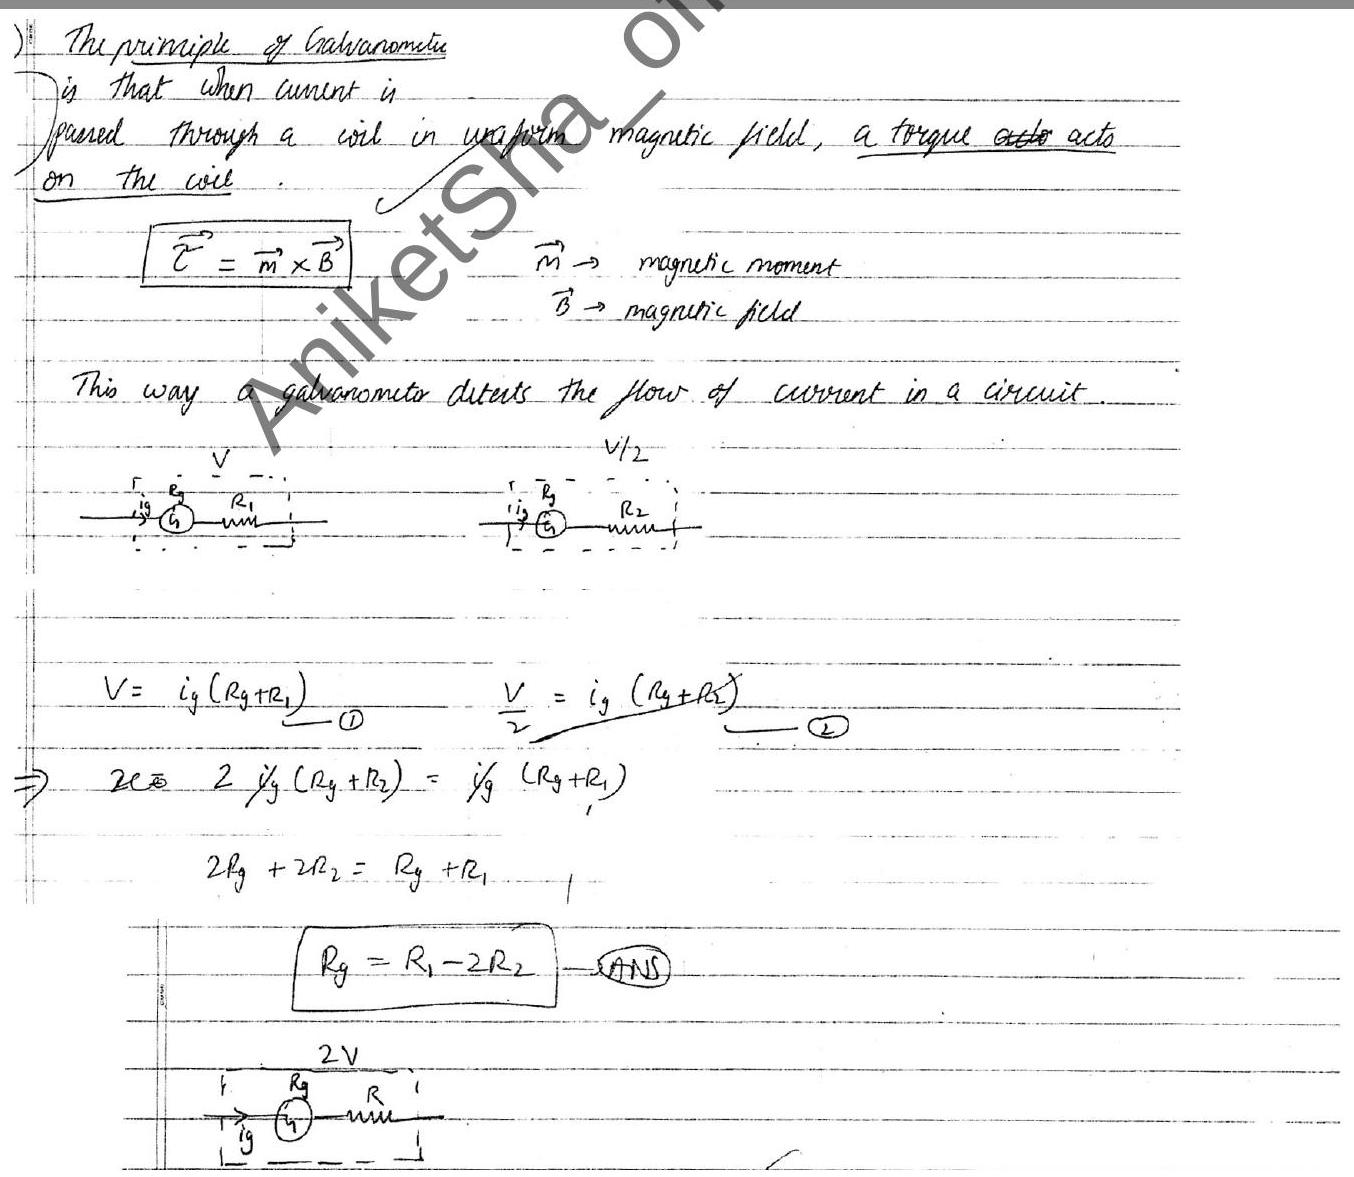 ) The principle of Galvanometer
is that when current is
passed through a coil in uniform magnetic field, a torque acts
on the coil .
τ⃗ = m⃗ × B⃗
m⃗ → magnetic moment
B⃗ → magnetic field
This way a galvanometer detects the flow of current in a circuit .
V
ig Rg G R1
V/2
ig Rg G R2
V = ig (Rg+R1) — ①
V/2 = ig (Rg+R2) — ②
⇒ 2 ig (Rg + R2) = ig (Rg+R1)
2Rg + 2R2 = Rg + R1
Rg = R1 - 2R2 — ANS
2V
Rg R
G
ig
AniketSha_of